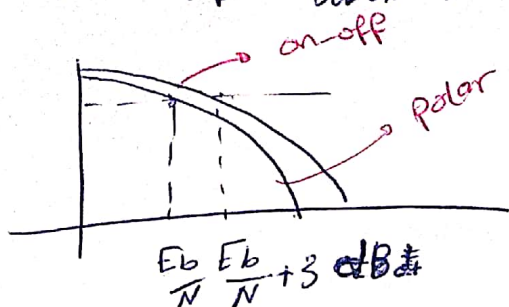 on-off
polar
Eb/N Eb/N + 3 dB